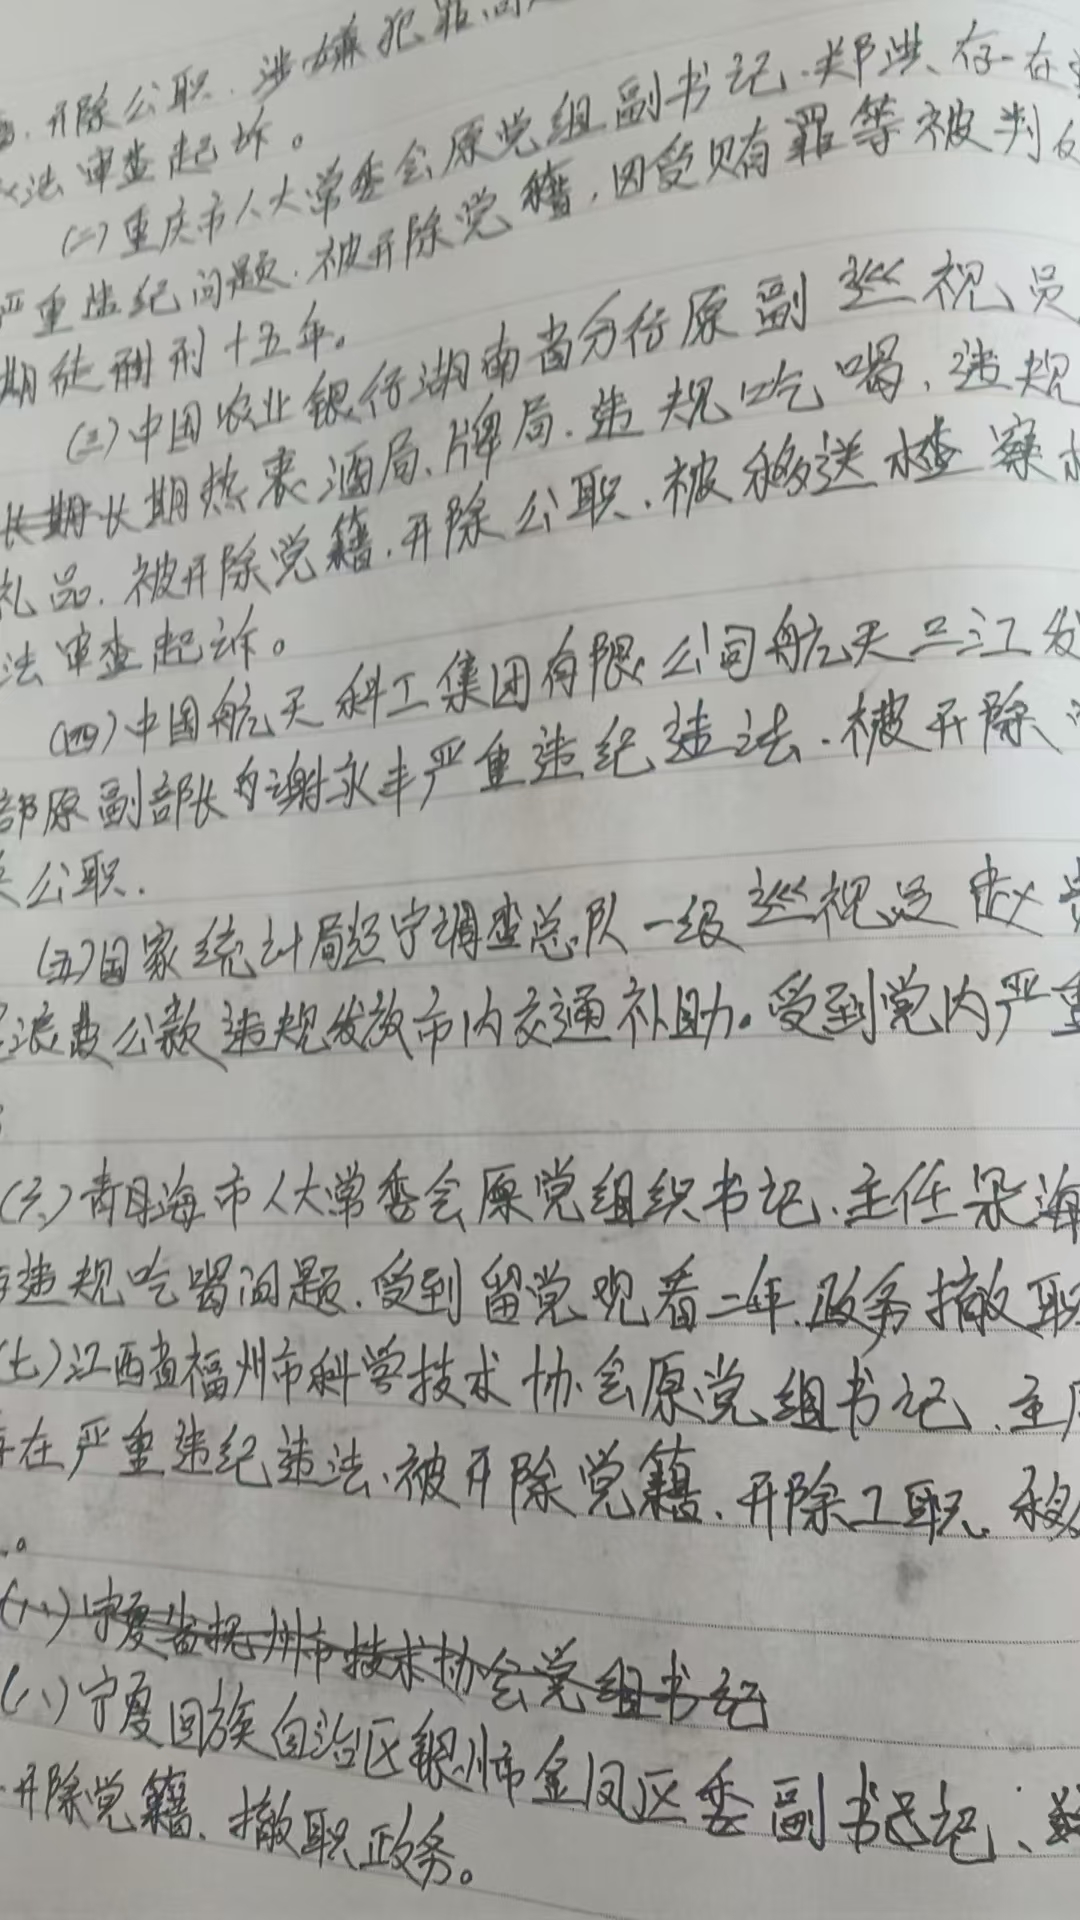 开除公职.涉嫌犯罪问题
法审查起诉。
(二)重庆市人大常委会原党组副书记.郑洪、存在
严重违纪问题.被开除党籍,因受贿罪等被判
期徒刑刑十五年。
(三)中国农业银行湖南省分行原副巡视员
长期长期热衷酒局、牌局.违规吃喝、违规
礼品.被开除党籍.开除公职.被移送检察
法审查起诉。
(四)中国航天科工集团有限公司航天三江发
部原副部长的谢永丰严重违纪违法.被开除
公职.
(五)国家统计局辽宁调查总队一级巡视员赵
浪费公款违规发放市内交通补助。受到党内严重
(六)青海市人大常委会原党组织书记、主任梁海
违规吃喝问题.受到留党观看二年.政务撤职
(七)江西省福州市科学技术协会原党组书记、主
存在严重违纪违法、被开除党籍、开除工职、移
。
(八)宁夏省抚州市技术协会党组书记
(八)宁夏回族自治区银川市金凤区委副书记、
开除党籍、撤职政务。